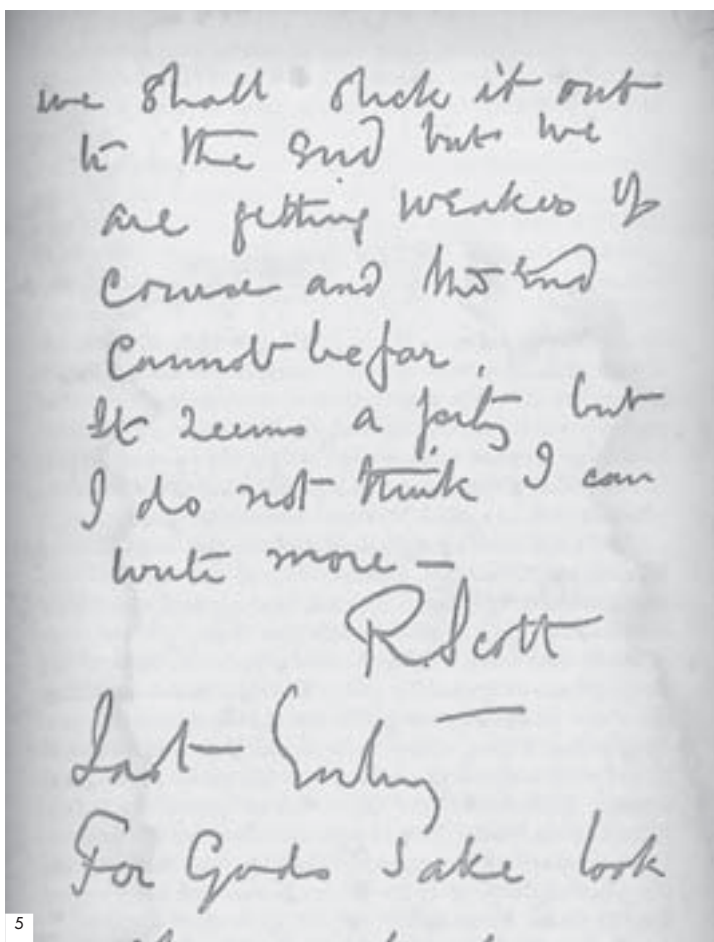 we shall stick it out
to the end but we
are getting weaker of
course and the end
cannot be far.
It seems a pity but
I do not think I can
write more —
R. Scott
Last Entry
For Gods sake look
5